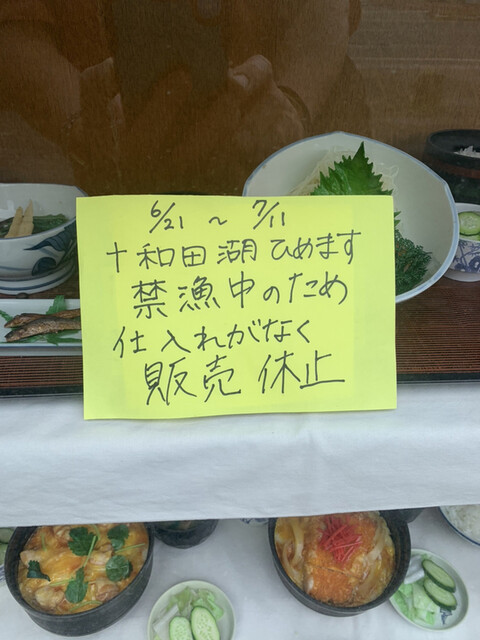 6/21 ~ 7/11
十和田湖ひめます
禁漁中のため
仕入れがなく
販売休止